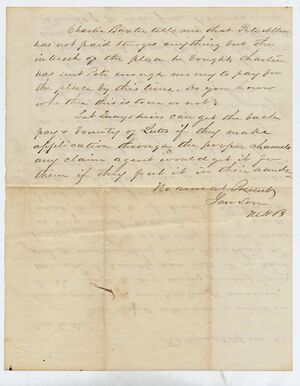 Charlie Baxter tells me that Pete Allen
has not paid Sturges anything but the
interest of the place he bought, Charlie
has sent Pete enough money to pay for
the place by this time. Do you know
whether this is true or not.
can get the back
pay & bounty of if they make
application through the proper channels
any claim agent would get it for
them if they put it in their hands
No news at Present
Your Son